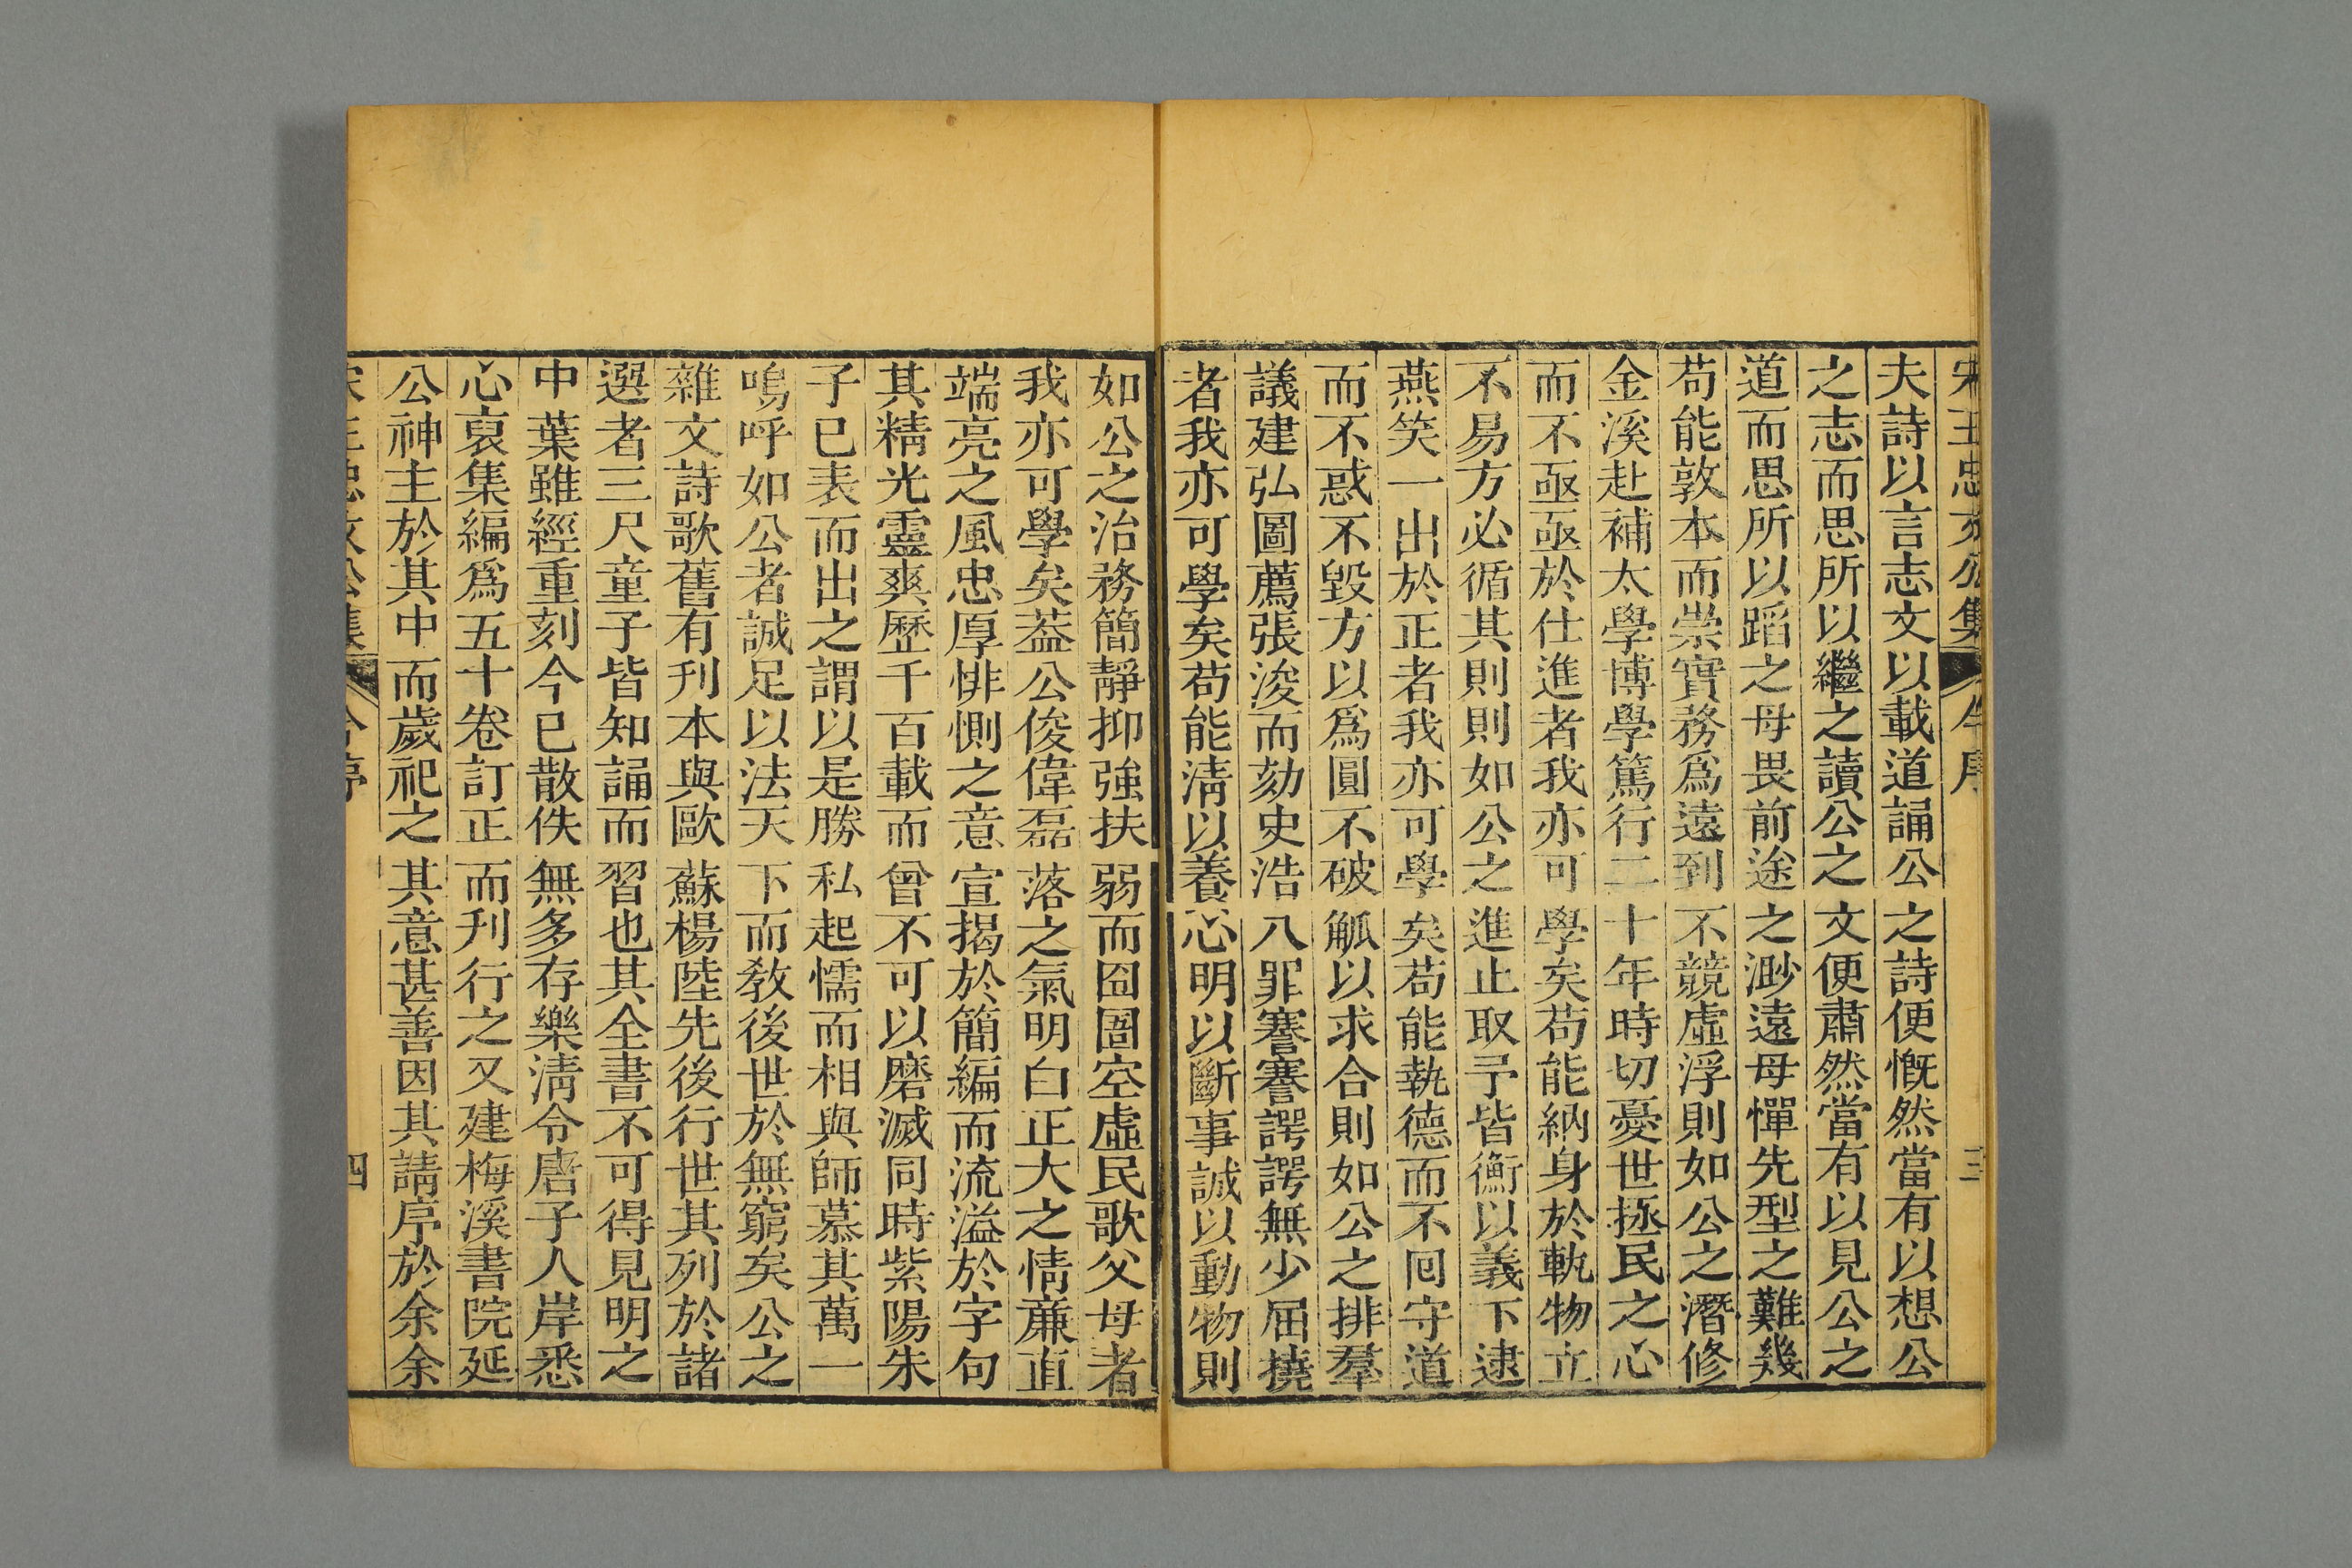 宋王忠文公集 今序 三
夫詩以言志文以載道誦公之詩便慨然當有以想公
之志而思所以繼之讀公之文便肅然當有以見公之
道而思所以蹈之毋畏前途之渺遠毋憚先型之難幾
苟能敦本而崇實務爲遠到不競虛浮則如公之潛修
金溪赴補太學博學篤行二十年時切憂世拯民之心
而不亟亟於仕進者我亦可學矣苟能納身於軌物立
不易方必循其則則如公之進止取予皆衡以義下逮
燕笑一出於正者我亦可學矣苟能執德而不囘守道
而不惑不毀方以爲圓不破觚以求合則如公之排羣
議建弘圖薦張浚而劾史浩八罪謇謇諤諤無少屈撓
者我亦可學矣苟能淸以養心明以斷事誠以動物則
如公之治務簡靜抑強扶弱而囹圄空虛民歌父母者
我亦可學矣葢公俊偉磊落之氣明白正大之情廉直
端亮之風忠厚悱惻之意宣揭於簡編而流溢於字句
其精光靈爽歷千百載而曾不可以磨滅同時紫陽朱
子已表而出之謂以是勝私起懦而相與師慕其萬一
嗚呼如公者誠足以法天下而敎後世於無窮矣公之
雜文詩歌舊有刋本與歐蘇楊陸先後行世其列於諸
選者三尺童子皆知誦而習也其全書不可得見明之
中葉雖經重刻今已散佚無多存樂淸令唐子人岸悉
心裒集編爲五十卷訂正而刋行之又建梅溪書院延
公神主於其中而歲祀之其意甚善因其請序於余余
宋王忠文公集 今序 四